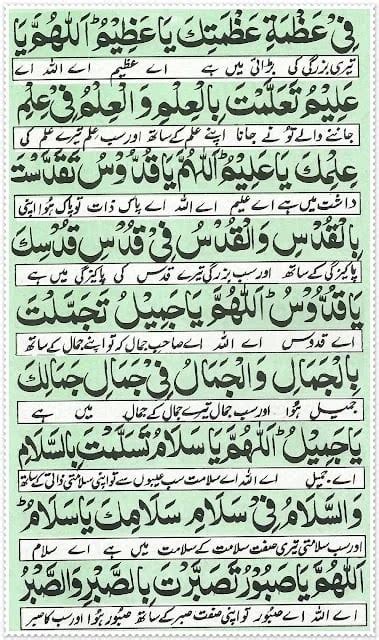 فِیْ عَظْمَةِ عَظَمَتِكَ یَا عَظِیْمُ ۚ اَللّٰهُمَّ یَا
تیری بزرگی کی بڑائی میں ہے اے عظیم اے اللہ اے
عَلِیْمُ تَعَلَّمْتَ بِالْعِلْمِ وَالْعِلْمُ فِیْ عِلْمِ
جاننے والے تو نے جانا اپنے علم کے ساتھ اور سب علم تیرے علم کی
عِلْمِكَ یَا عَلِیْمُ ۚ اَللّٰهُمَّ یَا قُدُّوْسُ تَقَدَّسْتَ
داخت میں ہے اے علیم اے اللہ اے پاک ذات تو پاک ہوا اپنی
بِالْقُدْسِ وَالْقُدْسُ فِیْ قُدْسِ قُدْسِكَ
پاکیزگی کے ساتھ اور سب بزرگی تیرے قدس کی پاکیزگی میں ہے
یَا قُدُّوْسُ ۚ اَللّٰهُمَّ یَا جَمِیْلُ تَجَمَّلْتَ
اے قدوس اے اللہ اے صاحب جمال کر تو اپنے جمال کے ساتھ
بِالْجَمَالِ وَالْجَمَالُ فِیْ جَمَالِ جَمَالِكَ
جمیل ہوا اور سب جمال تیرے جمال کے جمال میں ہے
یَا جَمِیْلُ ۚ اَللّٰهُمَّ یَا سَلَامُ تَسَلَّمْتَ بِالسَّلَامِ
اے جمیل اے اللہ اے سلامت سب عیبوں سے تو اپنی سلامتی ذاتی کے ساتھ
وَالسَّلَامُ فِیْ سَلَامِ سَلَامِكَ یَا سَلَامُ ۚ
اور سب سلامتی تیری صفت سلامت کے سلامت میں ہے اے سلام
اَللّٰهُمَّ یَا صَبُوْرُ تَصَبَّرْتَ بِالصَّبْرِ وَالصَّبْرُ
اے اللہ اے صبور تو اپنی صفت صبر کے ساتھ صبور ہوا اور سب کا صبر